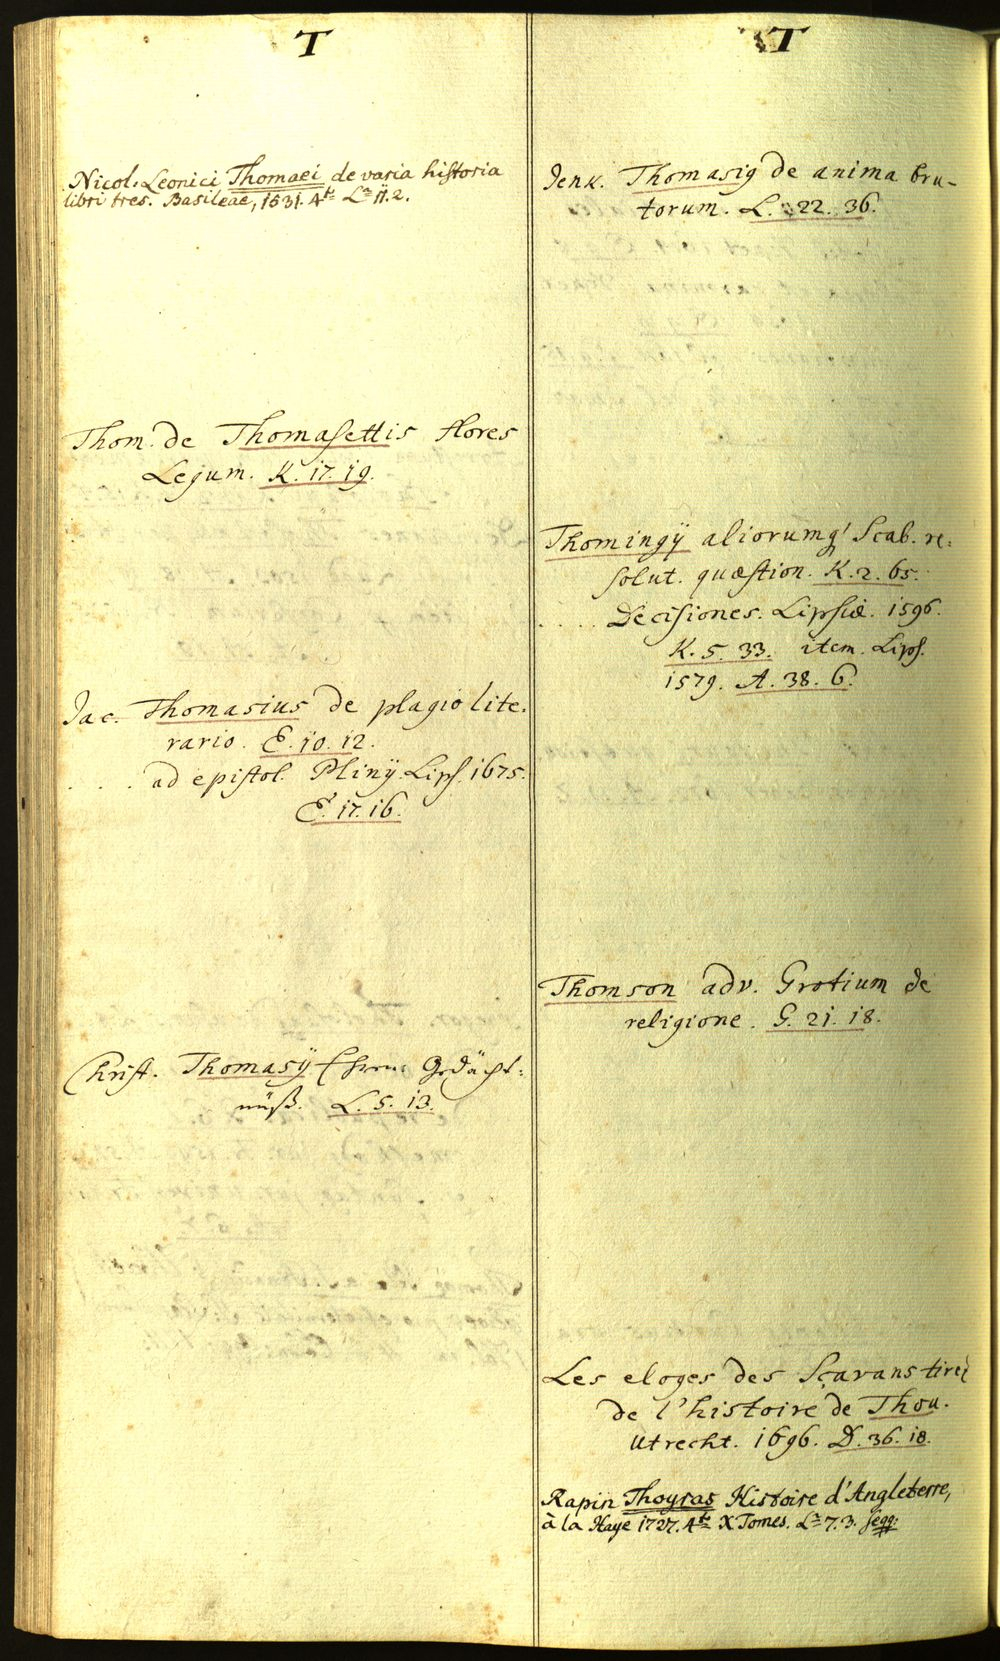 T
Nicol. Leonici Thomaei de varia historia
libri tres. Basileae, 1531. 4to La 11.2.
Thom. de Thomasettis flores
Legum. K. 17. 19.
Jac. Thomasius de plagio lite-
rario. E. 10. 12.
. . . . ad epistol. Plinÿ. Lips. 1675.
E. 17. 16.
Christ. Thomasÿ Ehren Gedächt-
nüß. L. 5. 13.
T
Jenk. Thomasiy de anima bru-
torum. L. 22. 36.
Thomingÿ aliorumq' Scab. re-
solut. quæstion. K. 2. 65.
. . . . Decisiones. Lipsiæ. 1596.
K. 5. 33. item. Lips.
1579. A. 38. 6.
Thomson adv. Grotium de
religione. G. 21. 18.
Les eloges des Sçavans tirez
de l'histoire de Thou.
Utrecht. 1696. D. 36. 18.
Rapin Thoyras Histoire d'Angleterre,
à la Haye 1727. 4to X Tomes. La 7.3. seqq: